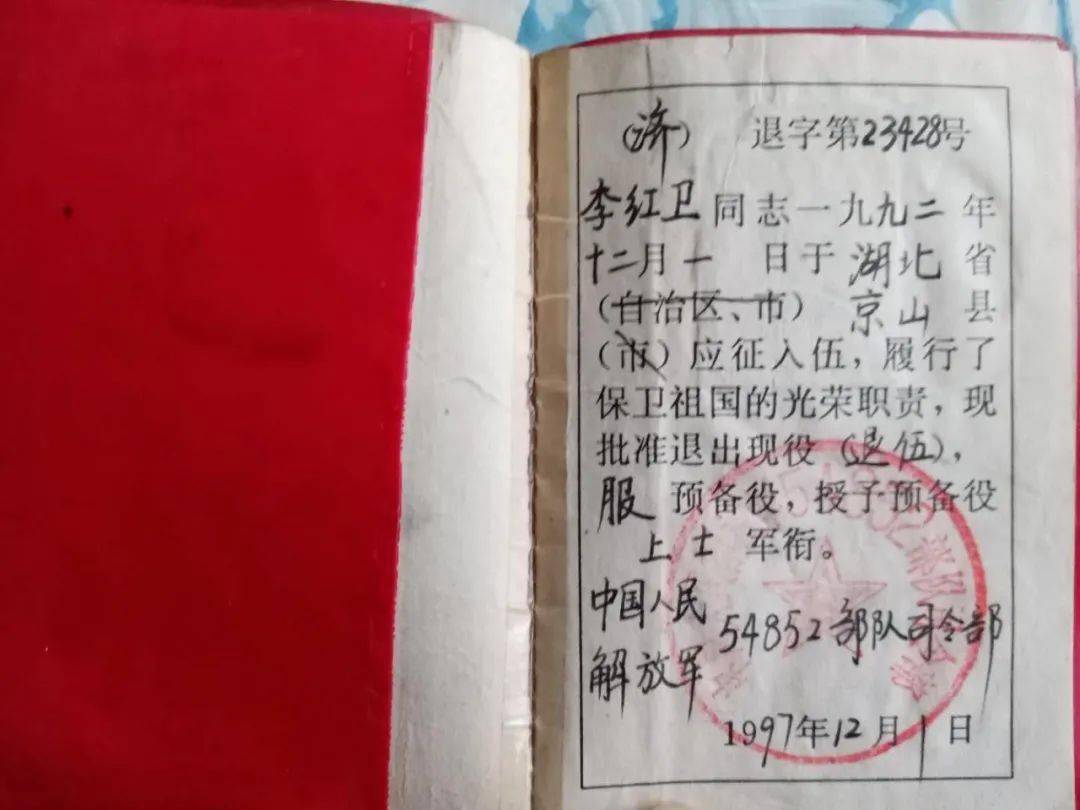 (济) 退字第23428号
李红卫同志一九九二年
十二月一日于湖北省
(自治区、市)京山县
(市)应征入伍,履行了
保卫祖国的光荣职责,现
批准退出现役(退伍),
服预备役,授予预备役
上士军衔。
中国人民
解放军 54852部队司令部
1997年12月1日